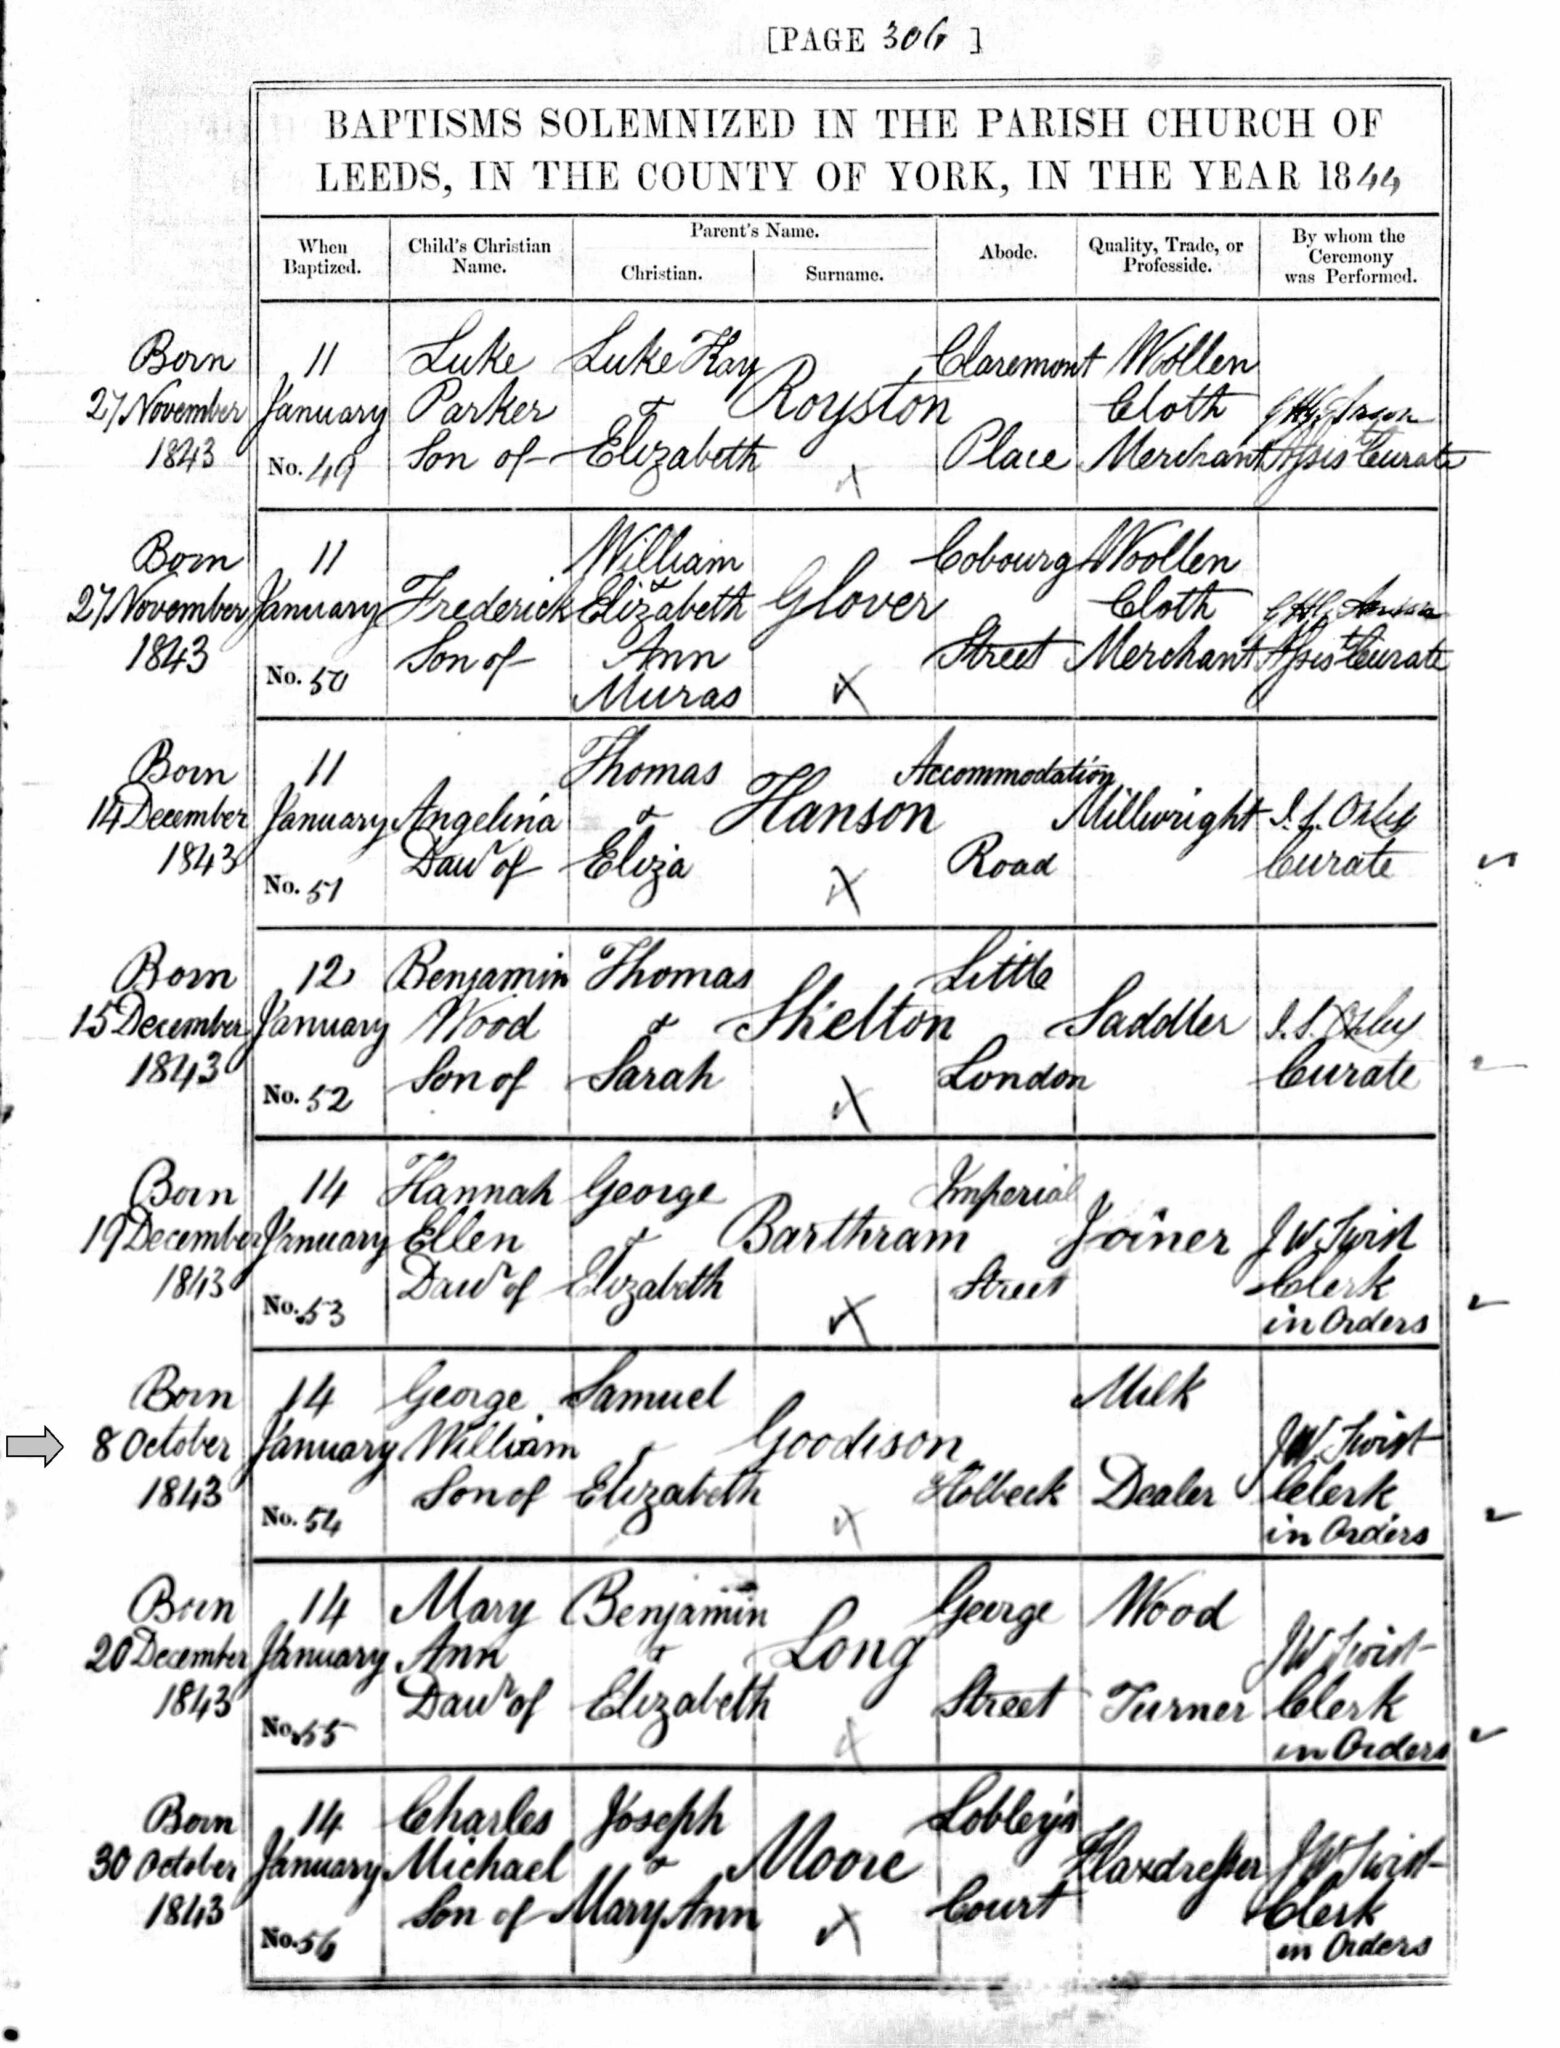 [PAGE 306 ]
BAPTISMS SOLEMNIZED IN THE PARISH CHURCH OF
LEEDS, IN THE COUNTY OF YORK, IN THE YEAR 1844
When Baptized.
Child's Christian Name.
Parent's Name.
Christian.
Surname.
Abode.
Quality, Trade, or Professide.
By whom the Ceremony was Performed.
Born 27 November 1843
11 January No. 49
Luke Parker Son of
Luke Kay & Elizabeth
Royston
Claremont Place
Woollen Cloth Merchant
Assist Curate
Born 27 November 1843
11 January No. 50
Frederick Son of
William & Elizabeth Ann Muras
Glover
Cobourg Street
Woollen Cloth Merchant
Assist Curate
Born 14 December 1843
11 January No. 51
Angelina Daur of
Thomas & Eliza
Hanson
Accommodation Road
Millwright
Curate
Born 15 December 1843
12 January No. 52
Benjamin Wood Son of
Thomas & Sarah
Skelton
Little London
Saddler
Curate
Born 19 December 1843
14 January No. 53
Hannah Ellen Daur of
George & Elizabeth
Barthram
Imperial Street
Joiner
J W Twist Clerk in Orders
Born 8 October 1843
14 January No. 54
George William Son of
Samuel & Elizabeth
Goodison
Holbeck
Milk Dealer
J W Twist Clerk in Orders
Born 20 December 1843
14 January No. 55
Mary Ann Daur of
Benjamin & Elizabeth
Long
George Street
Wood Turner
J W Twist Clerk in Orders
Born 30 October 1843
14 January No. 56
Charles Michael Son of
Joseph & Mary Ann
Moore
Lobley's Court
Flaxdresser
J W Twist Clerk in Orders